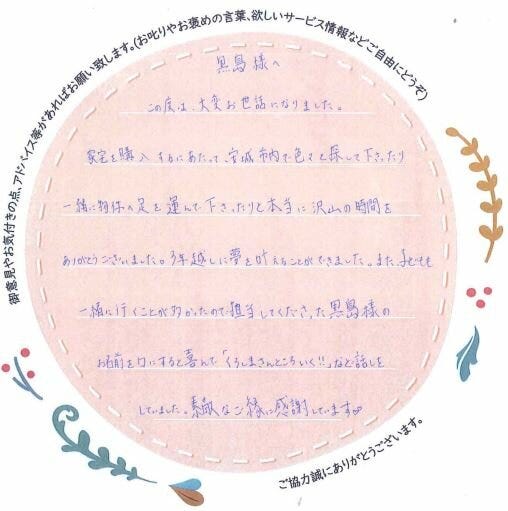 御意見やお気付きの点、アドバイス等があればお願い致します。(お叱りやお褒めの言葉、欲しいサービス情報などご自由にどうぞ)
黒島様へ
この度は、大変お世話になりました。
家宅を購入するにあたって、安城市内で色々と探して下さったり
一緒に物件の足を運んで下さったりと本当に沢山の時間を
ありがとうございました。3年越しに夢を叶えることができました。また、子どもも
一緒に行くことが多かったので担当してくださった黒島様の
お名前を口にすると喜んで「くろしまさんところいく!!」など話しを
していました。素敵なご縁に感謝しています
ご協力誠にありがとうございます。